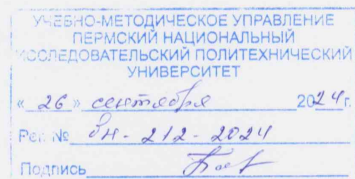 УЧЕБНО-МЕТОДИЧЕСКОЕ УПРАВЛЕНИЕ
ПЕРМСКИЙ НАЦИОНАЛЬНЫЙ
ИССЛЕДОВАТЕЛЬСКИЙ ПОЛИТЕХНИЧЕСКИЙ
УНИВЕРСИТЕТ
« 26 » сентября 2024г.
Рег. № ВН-212-2024
Подпись